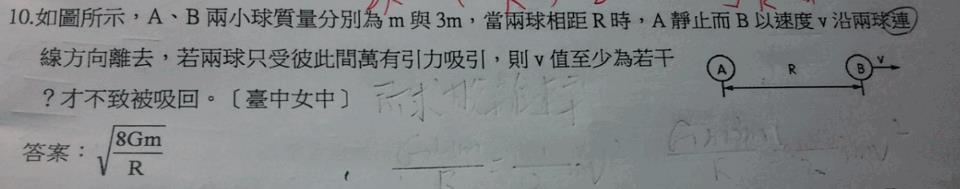 10.如圖所示，A、B 兩小球質量分別為 m 與 3m，當兩球相距 R 時，A 靜止而 B 以速度 v 沿兩球連
線方向離去，若兩球只受彼此間萬有引力吸引，則 v 值至少為若干
？才不致被吸回。〔臺中女中〕
A R B v
答案：√(8Gm/R)